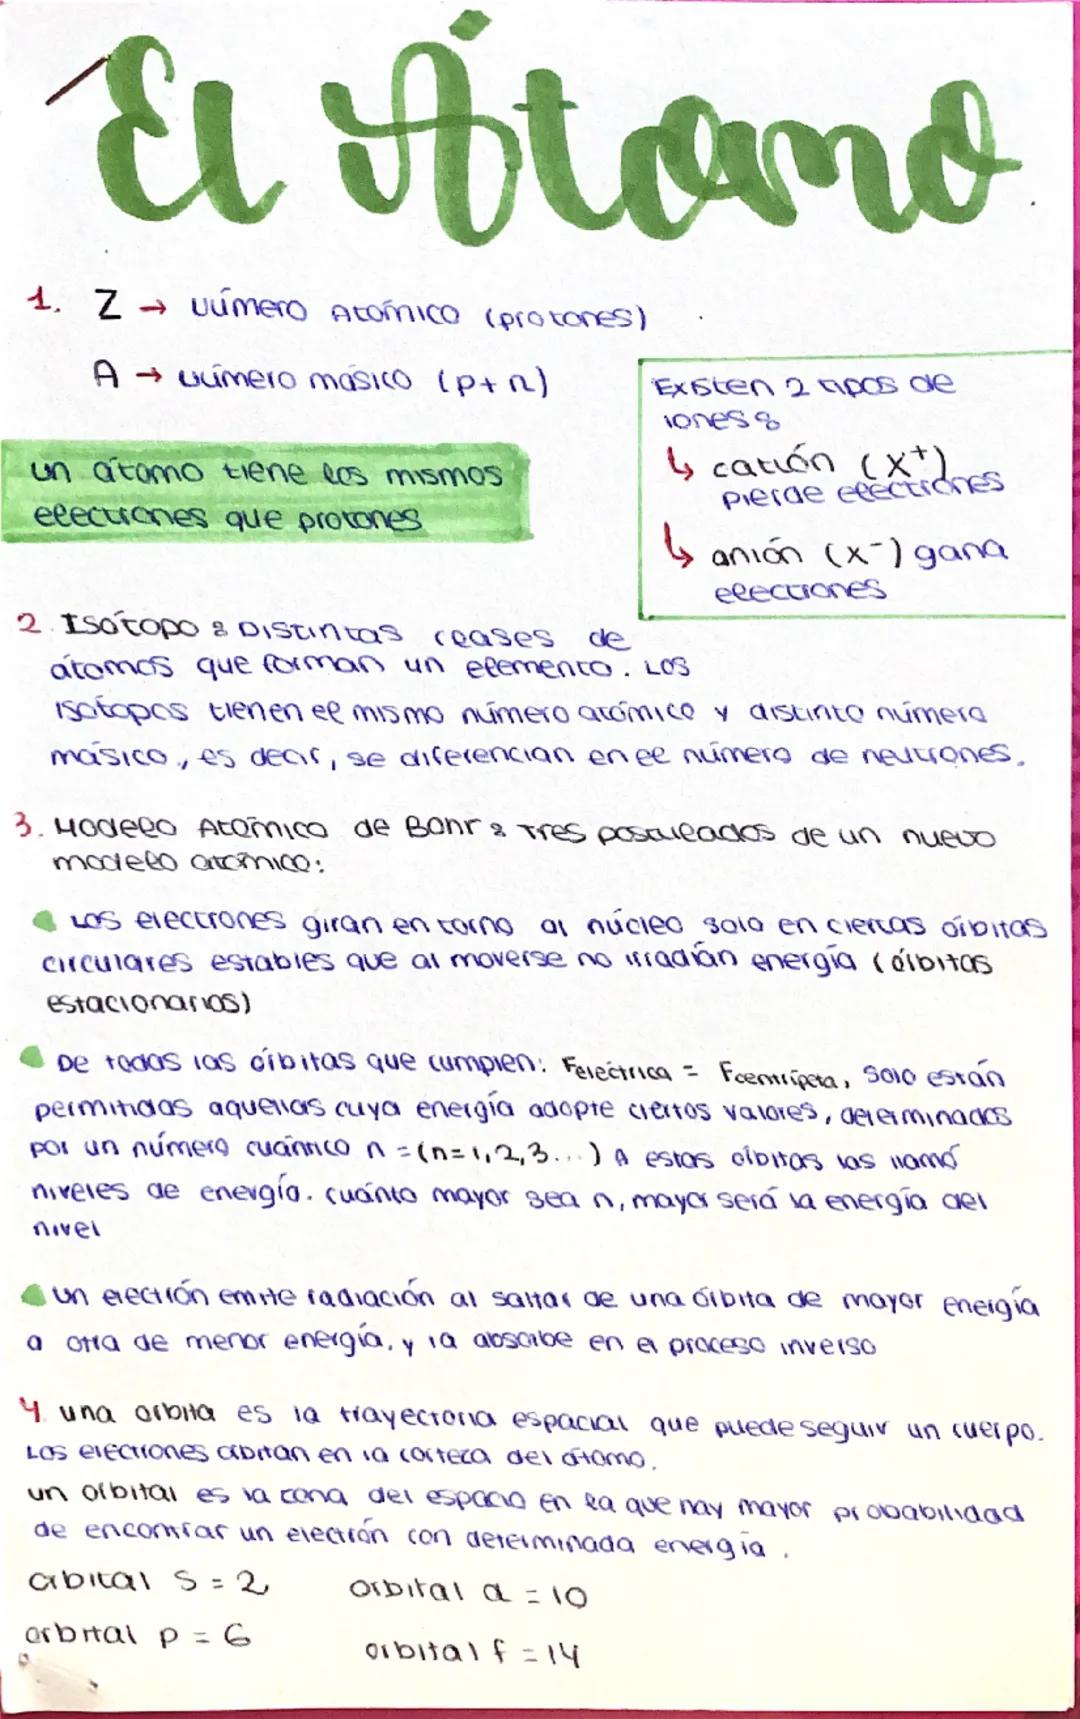 El Átomo
1. Z → número Atómico (protones)
A → número másico (p+n)
un átomo tiene los mismos
electrones que protones
Existen 2 tipos de
iones:
↳ catión (X⁺)
pierde electrones
↳ anión (x⁻) gana
electrones
2. Isótopo: Distintas clases de
átomos que forman un elemento. Los
isótopos tienen el mismo número atómico y distinto número
másico, es decir, se diferencian en el número de neutrones.
3. Modelo Atómico de Bohr: Tres postulados de un nuevo
modelo atómico:
Los electrones giran en torno al núcleo solo en ciertas órbitas
circulares estables que al moverse no irradián energía (órbitas
estacionarias)
De todas las órbitas que cumplen: Feléctrica = Fcentrípeta, solo están
permitidas aquellas cuya energía adopte ciertos valores, determinados
por un número cuántico n = (n=1,2,3...) A estas órbitas las llamó
niveles de energía. cuánto mayor sea n, mayor será la energía del
nivel
un electrón emite radiación al saltar de una órbita de mayor energía
a otra de menor energía, y la absorbe en el proceso inverso
4. una orbita es la trayectoria espacial que puede seguir un cuerpo.
Los electrones orbitan en la corteza del átomo.
un orbital es la zona del espacio en la que hay mayor probabilidad
de encontrar un electrón con determinada energía.
orbital s = 2 orbital d = 10
orbital p = 6 orbital f = 14